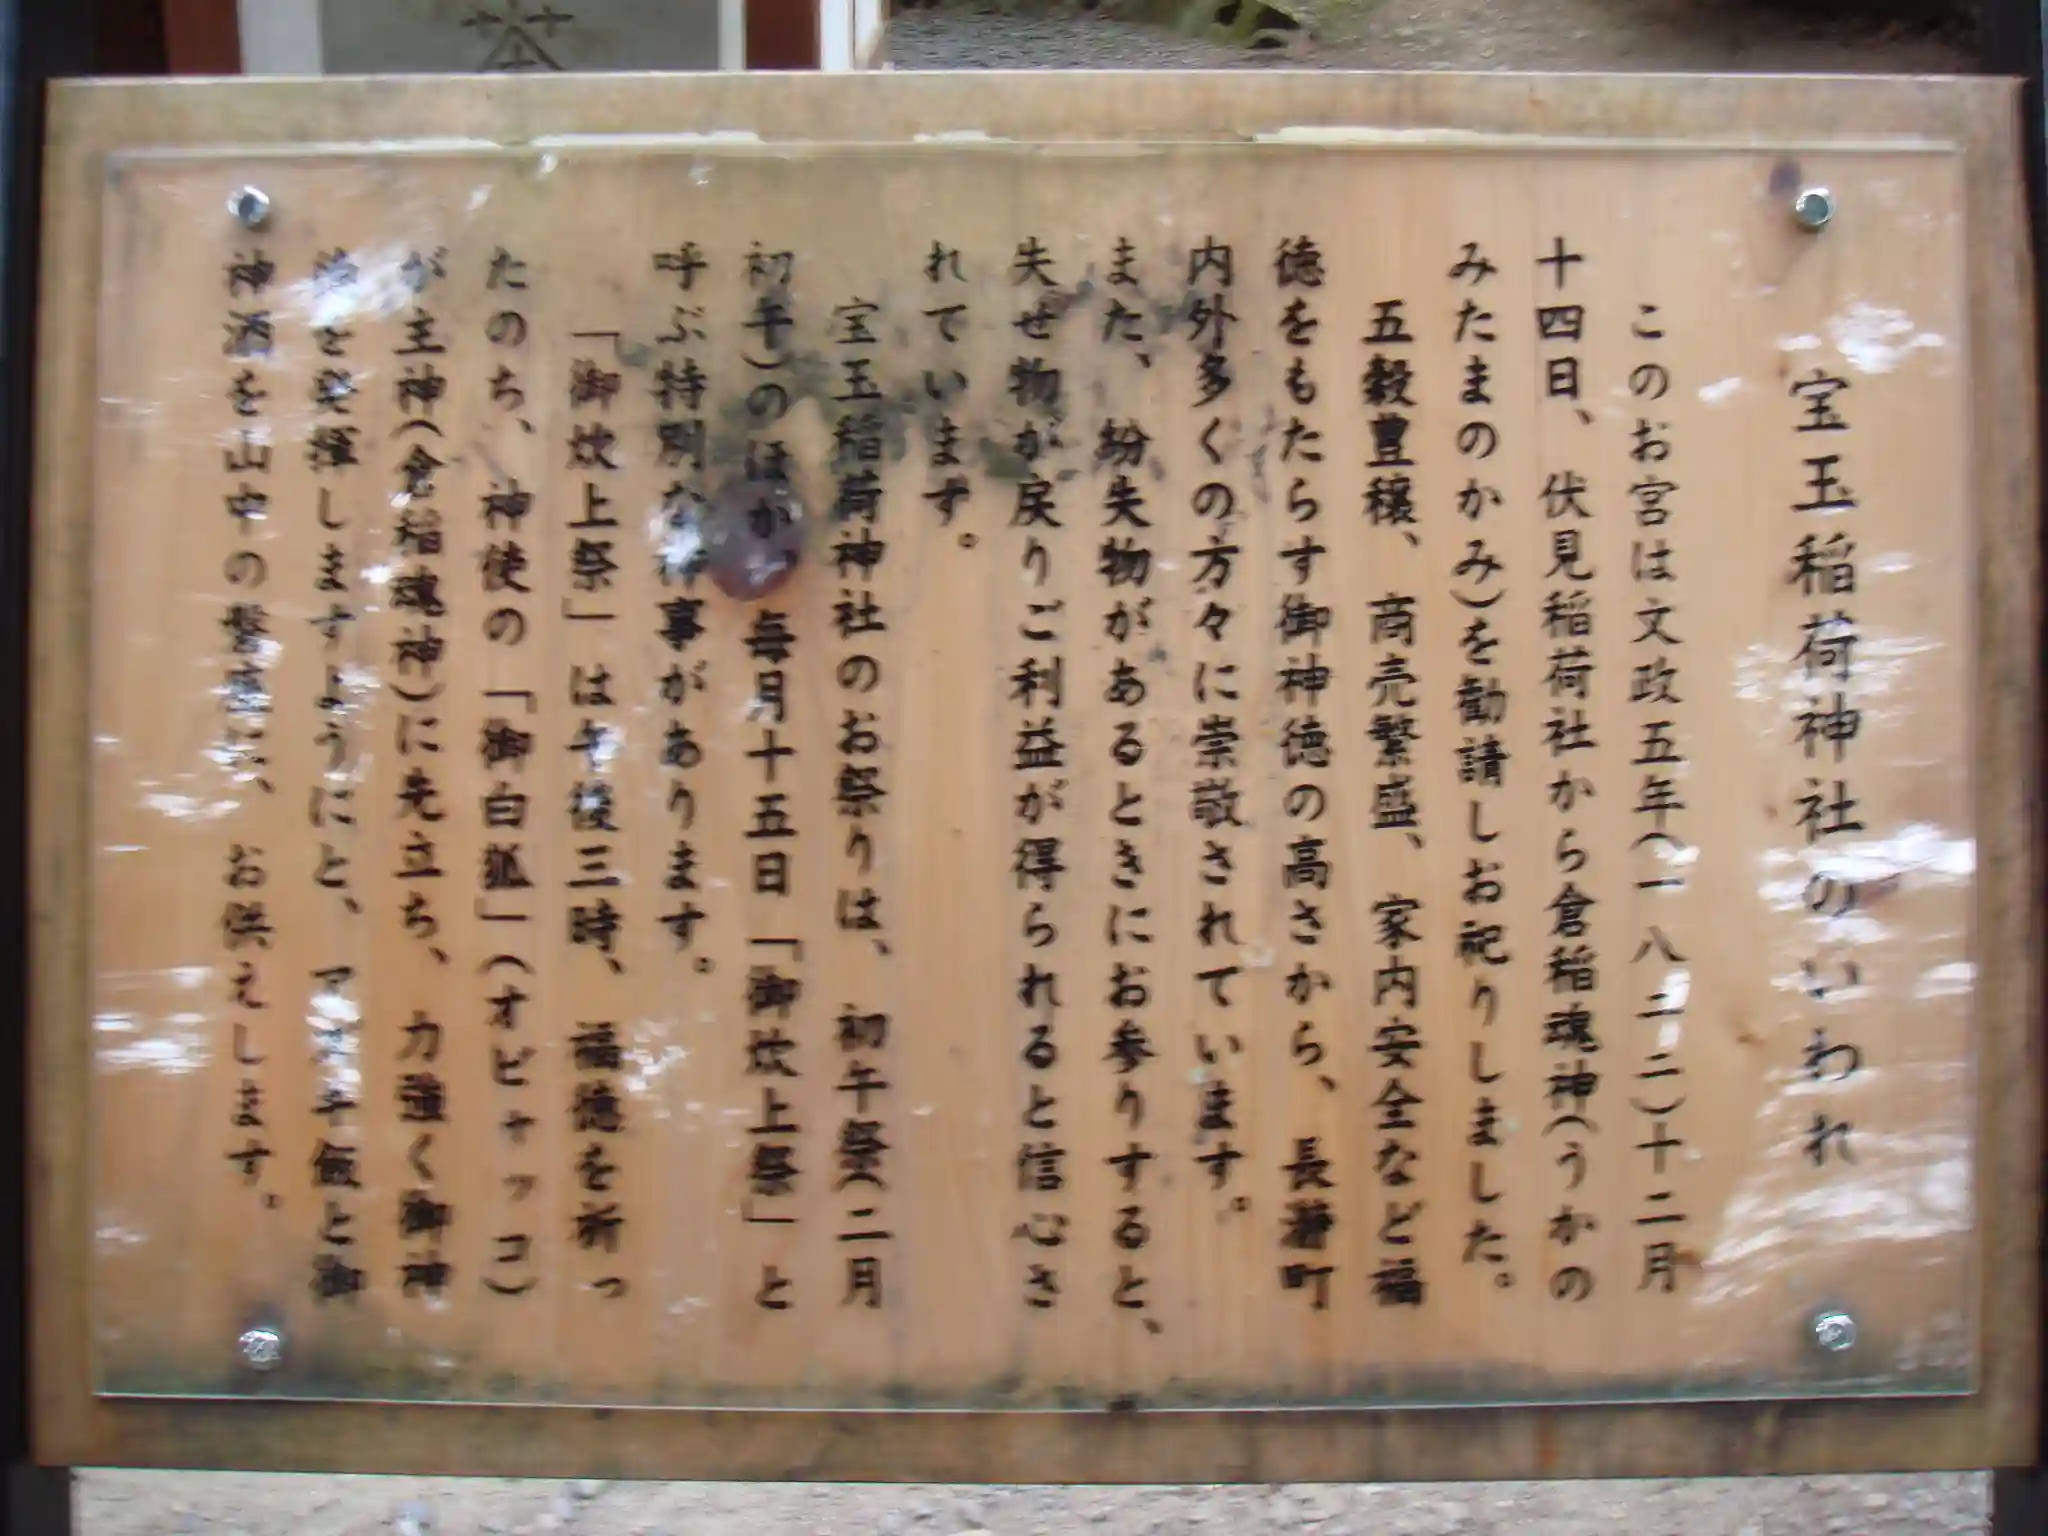 茶
宝玉稲荷神社のいわれ
このお宮は文政五年(一八二二)十二月
十四日、伏見稲荷社から倉稲魂神(うかの
みたまのかみ)を勧請しお祀りしました。
五穀豊穣、商売繁盛、家内安全など福
徳をもたらす御神徳の高さから、長瀞町
内外多くの方々に崇敬されています。
また、紛失物があるときにお参りすると、
失せ物が戻りご利益が得られると信心さ
れています。
宝玉稲荷神社のお祭りは、初午祭(二月
初午)のほか、毎月十五日「御炊上祭」と
呼ぶ特別な神事があります。
「御炊上祭」は午後三時、福徳を祈っ
たのち、神使の「御白狐」(オビャッコ)
が主神(倉稲魂神)に先立ち、力強く御神
を発揮しますようにと、アズキ飯と御
神酒を山中の磐座に、お供えします。